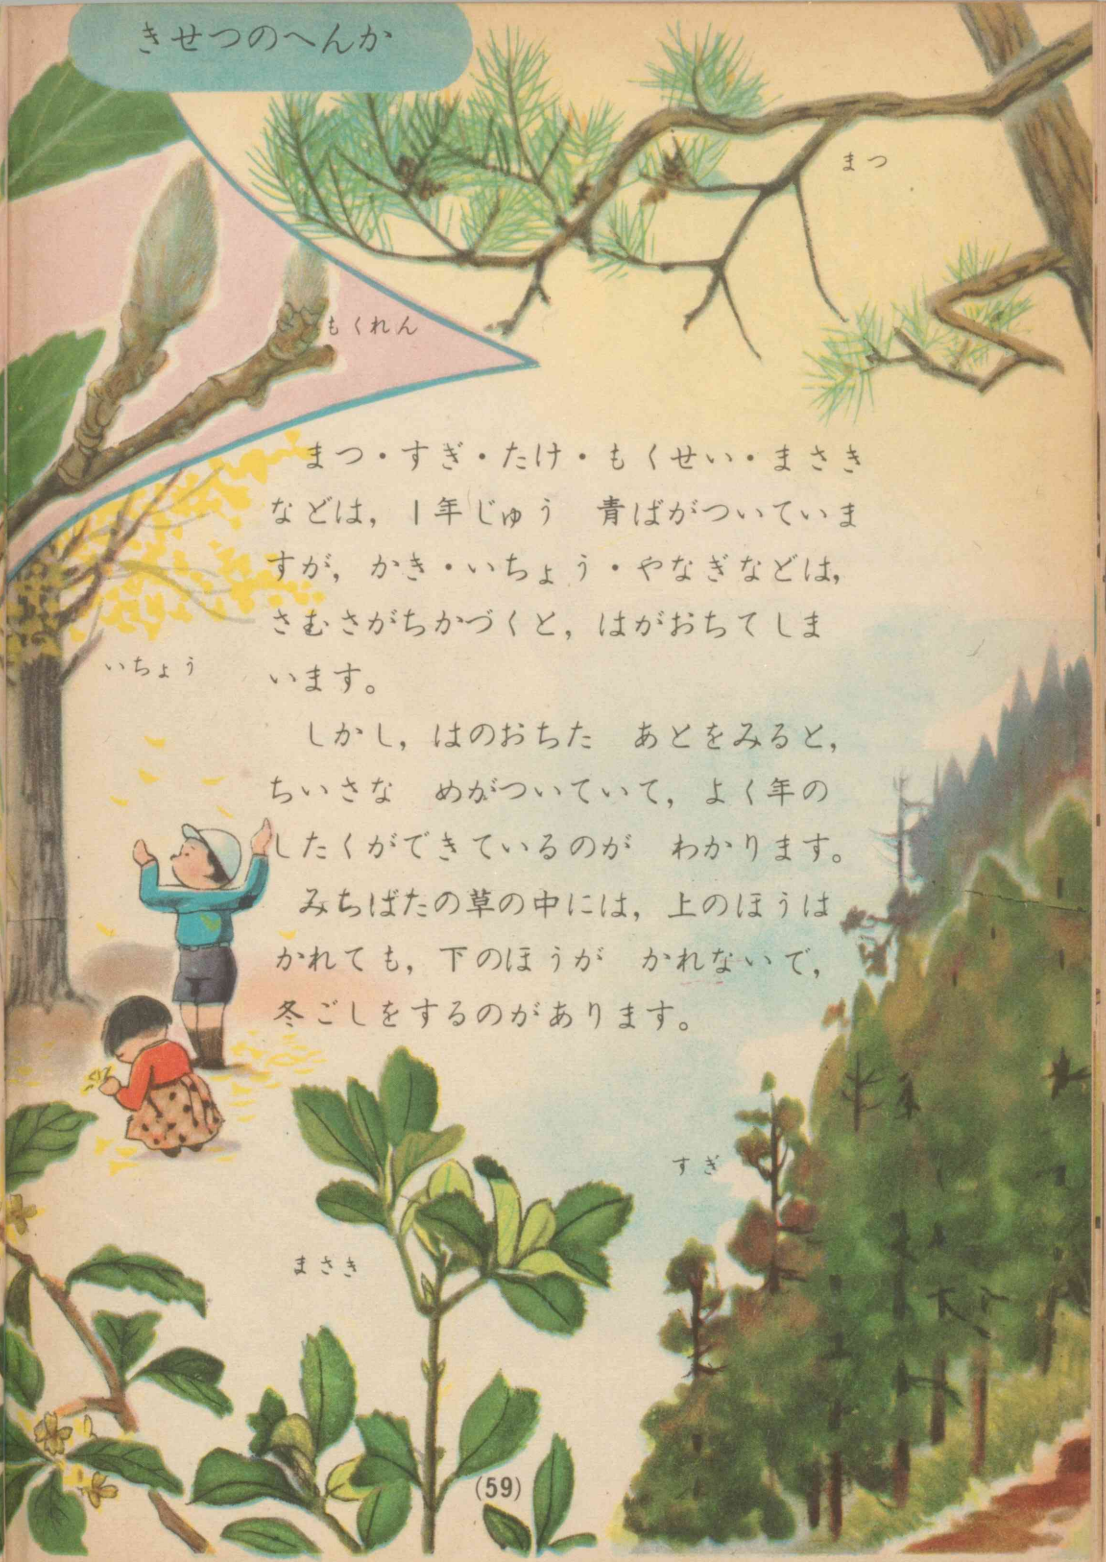 きせつのへんか
まつ
もくれん
まつ・すぎ・たけ・もくせい・まさき
などは，1年じゅう　青ばがついていま
すが，かき・いちょう・やなぎなどは，
さむさがちかづくと，はがおちてしま
います。
いちょう
しかし，はのおちた　あとをみると，
ちいさな　めがついていて，よく年の
したくができているのが　わかります。
みちばたの草の中には，上のほうは
かれても，下のほうが　かれないで，
冬ごしをするのがあります。
すぎ
まさき
(59)